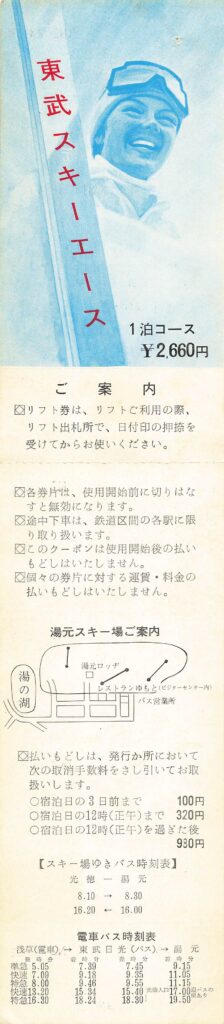 東武スキーエース
1泊コース
￥2,660円
ご案内
リフト券は、リフトご利用の際、
リフト出札所で、日付印の押捺を
受けてからお使いください。
各券片は、使用開始前に切りはな
すと無効になります。
途中下車は、鉄道区間の各駅に限
り取り扱います。
このクーポンは使用開始後の払い
もどしはいたしません。
個々の券片に対する運賃・料金の
払いもどしはいたします。
湯元スキー場ご案内
湯元ロッヂ
湯の湖
レストランゆもと(ビジターセンター内)
バス営業所
払いもどしは、発行か所において
次の取消手数料をさし引いてお取
扱いします。
○宿泊日の3日前まで 100円
○宿泊日の12時(正午)まで 320円
○宿泊日の12時(正午)を過ぎた後
930円
【スキー場ゆきバス時刻表】
光徳 ― 湯元
8.10 → 8.30
16.20 ← 16.00
電車バス時刻表
浅草(電車) → 東武日光(バス) → 湯元
準急 5.05 7.39 7.45 9.15
快速 7.09 9.18 9.35 11.05
特急 8.00 9.46 9.55 11.15
快速 13.20 15.34 15.40 17.00
特急 16.30 18.24 18.30 19.50